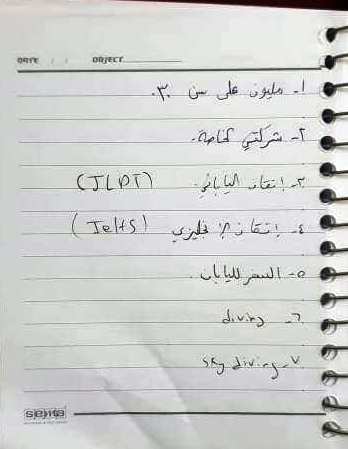 DATE / / OBJECT
١- مليون على سن ٣٠.
٢- شركتي الخاصة.
٣- إتقان الياباني. (JLPT)
٤- إتقان الإنجليزي (Ielts)
٥- السفر لليابان.
٦- diving
٧- sky diving
senta